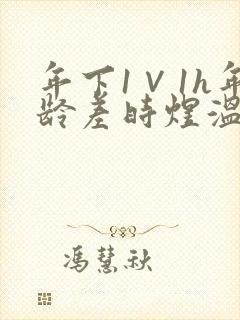 年下1V1h年
龄差时煜温
冯慧秋